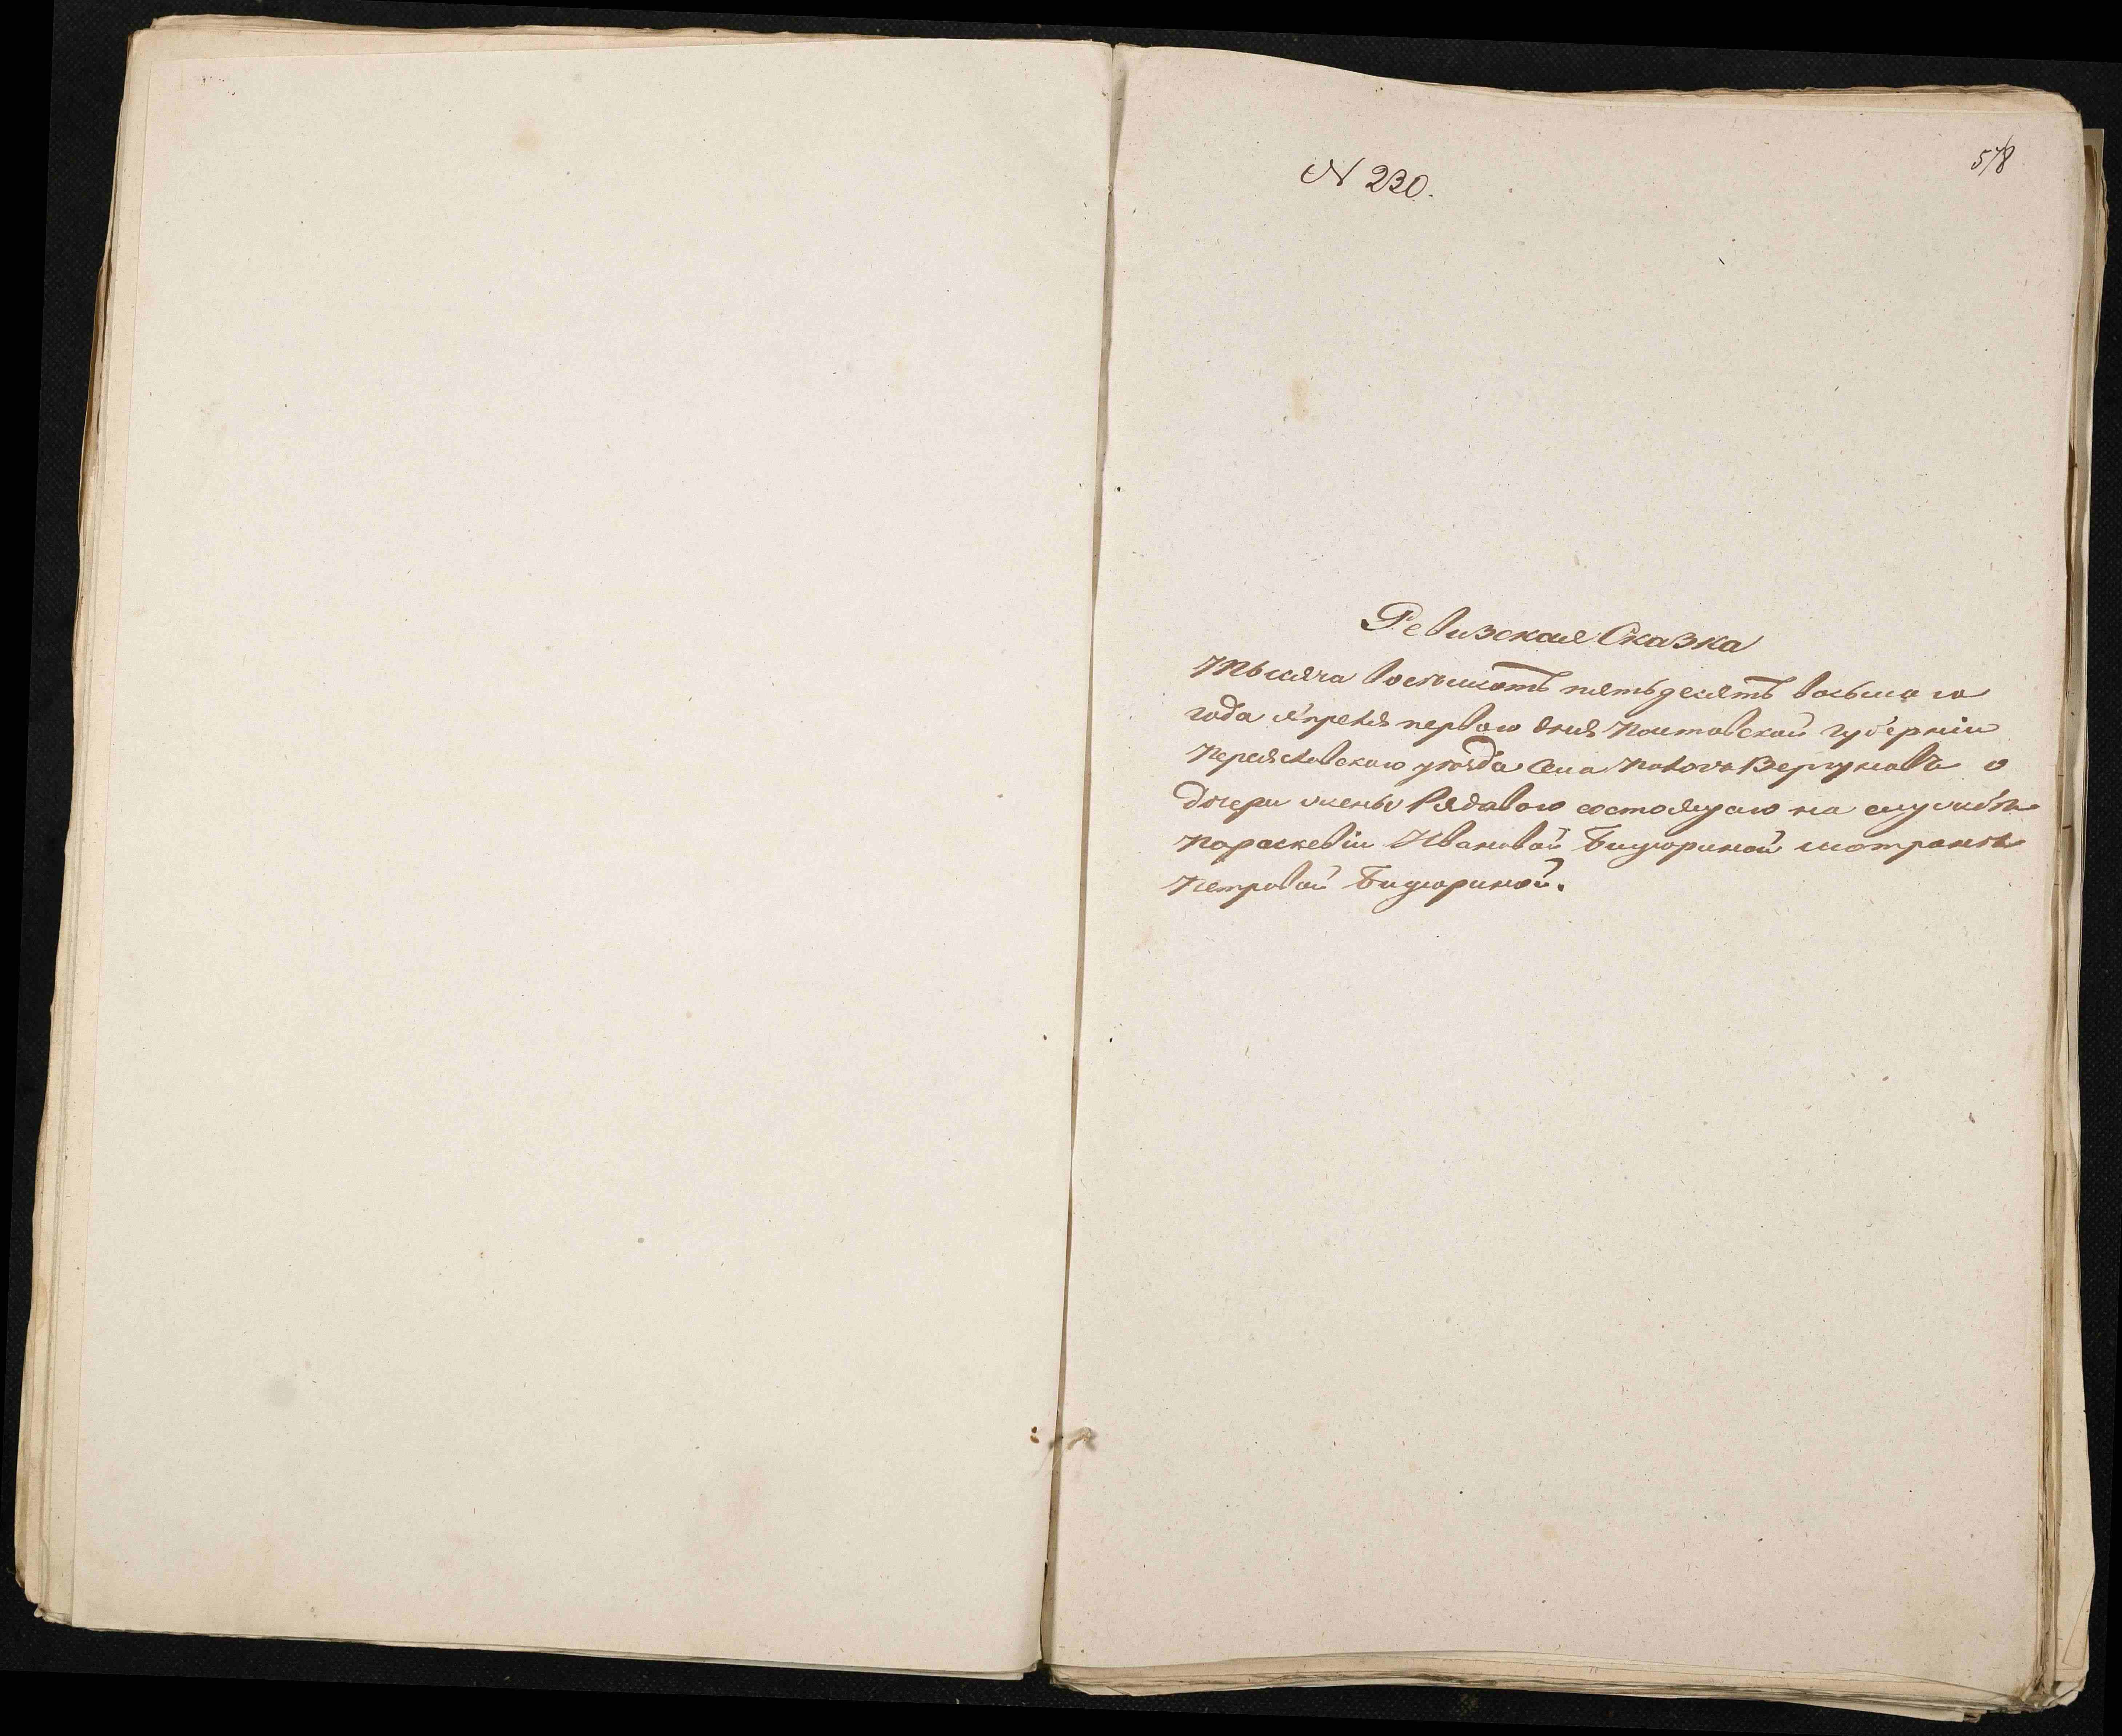 N 230.
578
Ревизская Сказка
Тысяча восемьсотъ пятьдесятъ восьмаго
года Апреля перваго дня Полтавской губерніи
Переяславского уезда Села
дочери жены Рядоваго состоящаго на службѣ
Параскевіи Ивановой Бицюриной Мотронѣ
Петровой Бицюриной.